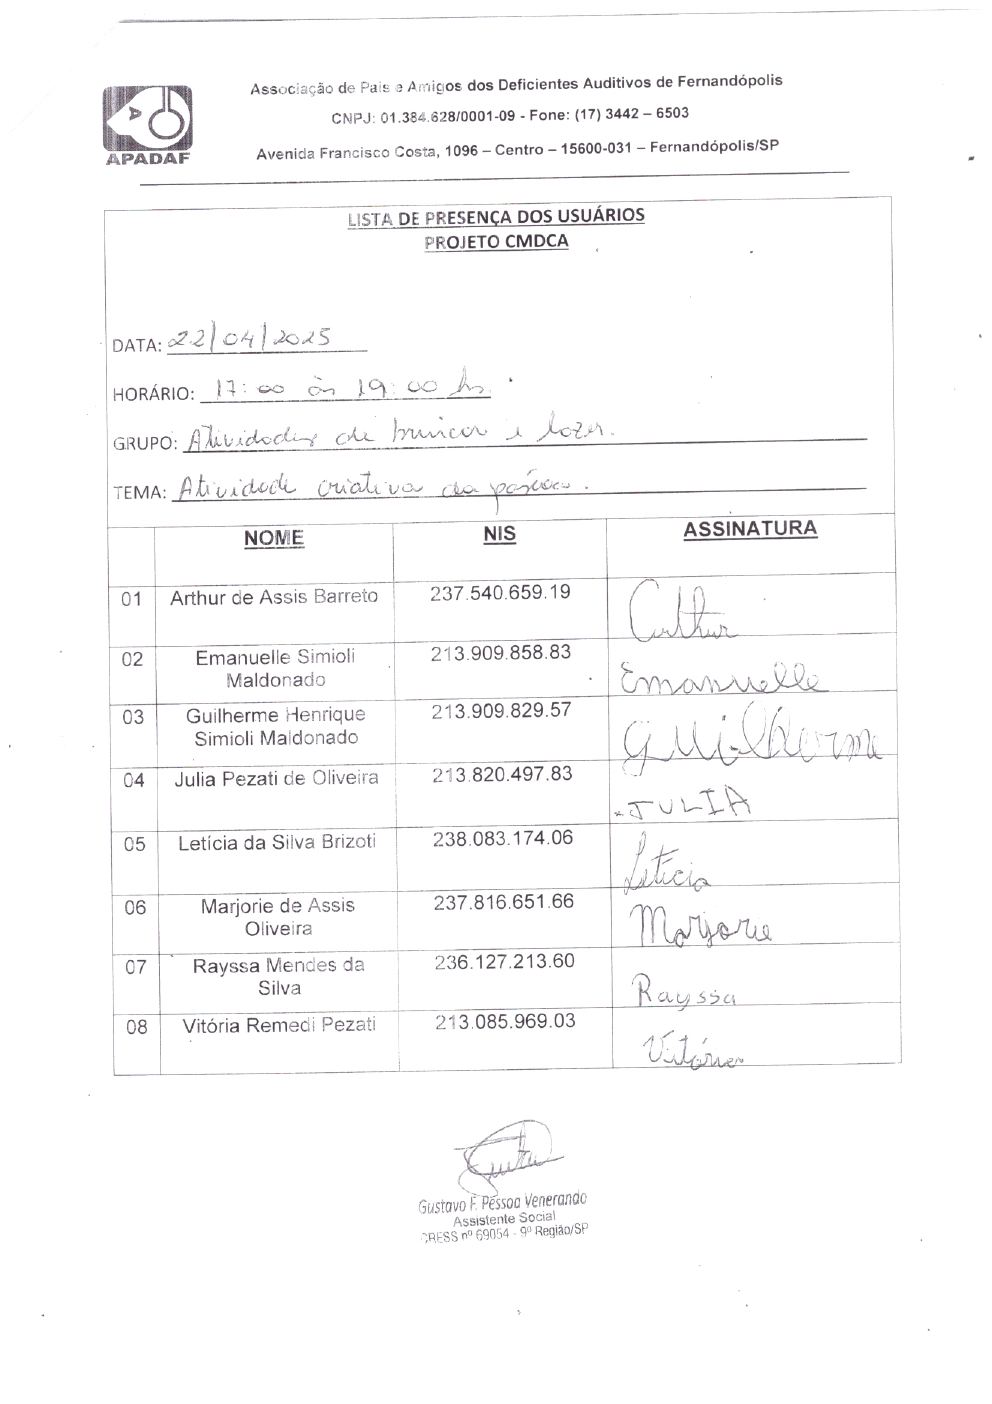 Associação de Pais e Amigos dos Deficientes Auditivos de Fernandópolis
CNPJ: 01.384.628/0001-09 - Fone: (17) 3442 – 6503
Avenida Francisco Costa, 1096 – Centro – 15600-031 – Fernandópolis/SP
APADAF
LISTA DE PRESENÇA DOS USUÁRIOS
PROJETO CMDCA
DATA: 22/04/2025
HORÁRIO: 17:00 às 19:00 hs
GRUPO: Atividades de brincar e lazer.
TEMA: Atividade criativa da páscoa.
NOME NIS ASSINATURA
01 Arthur de Assis Barreto 237.540.659.19 Arthur
02 Emanuelle Simioli Maldonado 213.909.858.83 Emanuelle
03 Guilherme Henrique Simioli Maldonado 213.909.829.57 Guilherme
04 Julia Pezati de Oliveira 213.820.497.83 JULIA
05 Letícia da Silva Brizoti 238.083.174.06 Letícia
06 Marjorie de Assis Oliveira 237.816.651.66 Marjorie
07 Rayssa Mendes da Silva 236.127.213.60 Rayssa
08 Vitória Remedi Pezati 213.085.969.03 Vitória
Gustavo F. Pessoa Venerando
Assistente Social
CRESS nº 69054 - 9º Região/SP